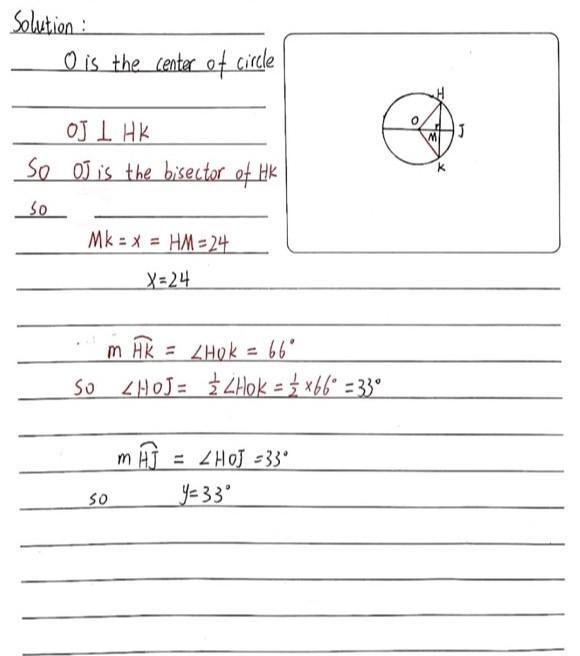 Solution :
O is the center of circle
OJ ⊥ HK
So OJ is the bisector of HK
so
Mk = x = HM = 24
X = 24
m H͡K = ∠HOK = 66°
so ∠HOJ = ½ ∠HOK = ½ × 66° = 33°
m H͡J = ∠HOJ = 33°
so y = 33°
H
O
M
J
K